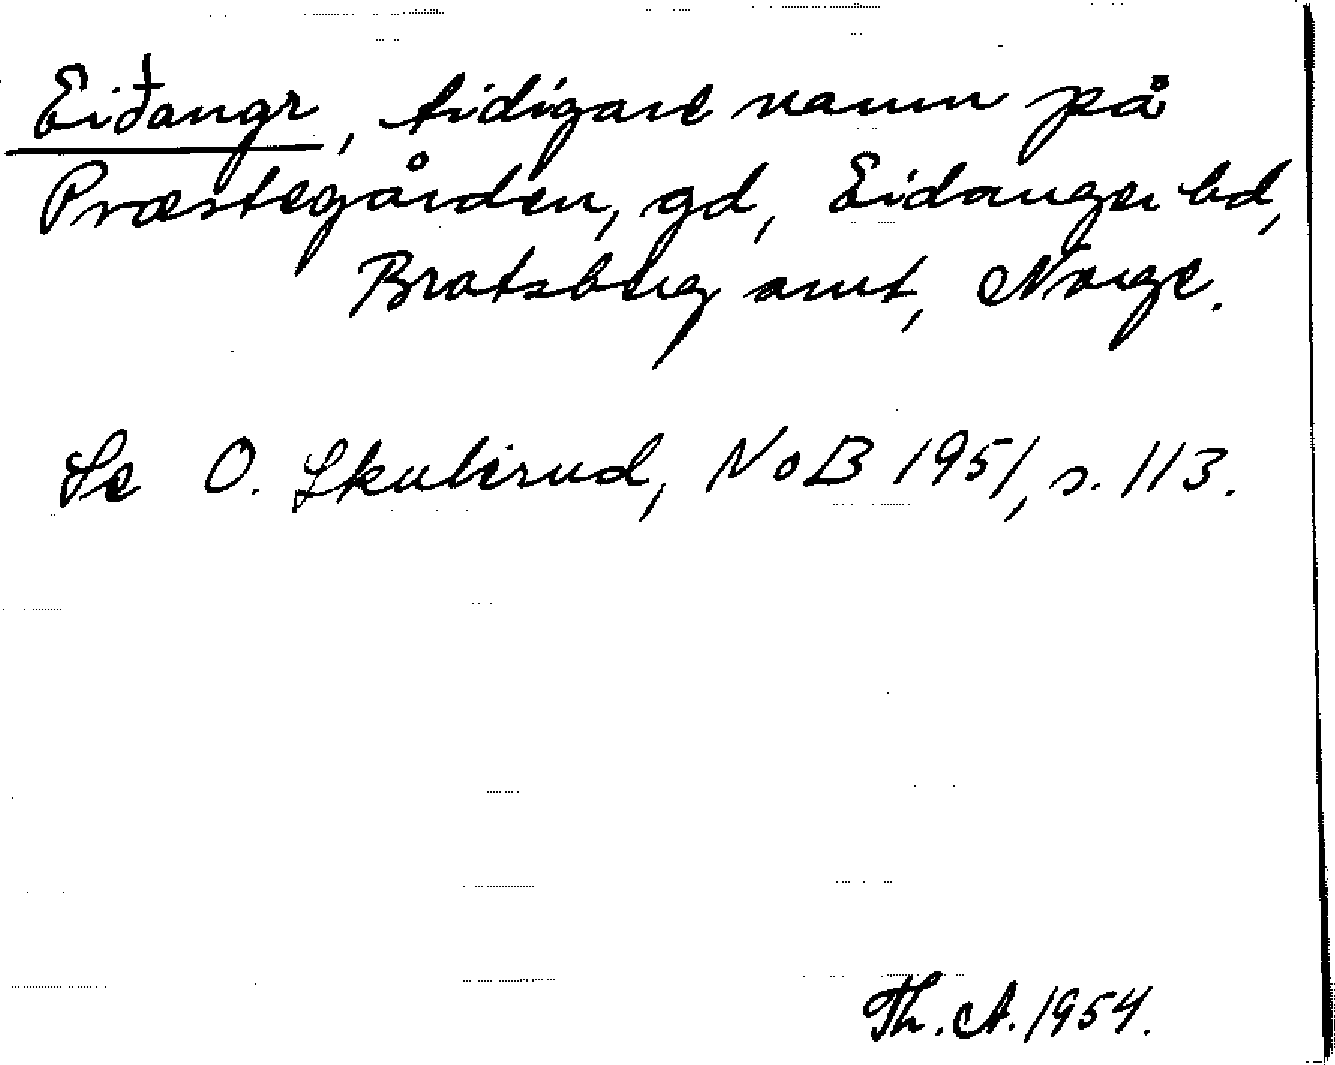 Eiðangr, tidigare namn på
Præstegården, gd, Eidanger bd,
Bratsberg amt, Norge.
Se O. Skulerud, NoB 1951, s. 113.
Th. A. 1954.